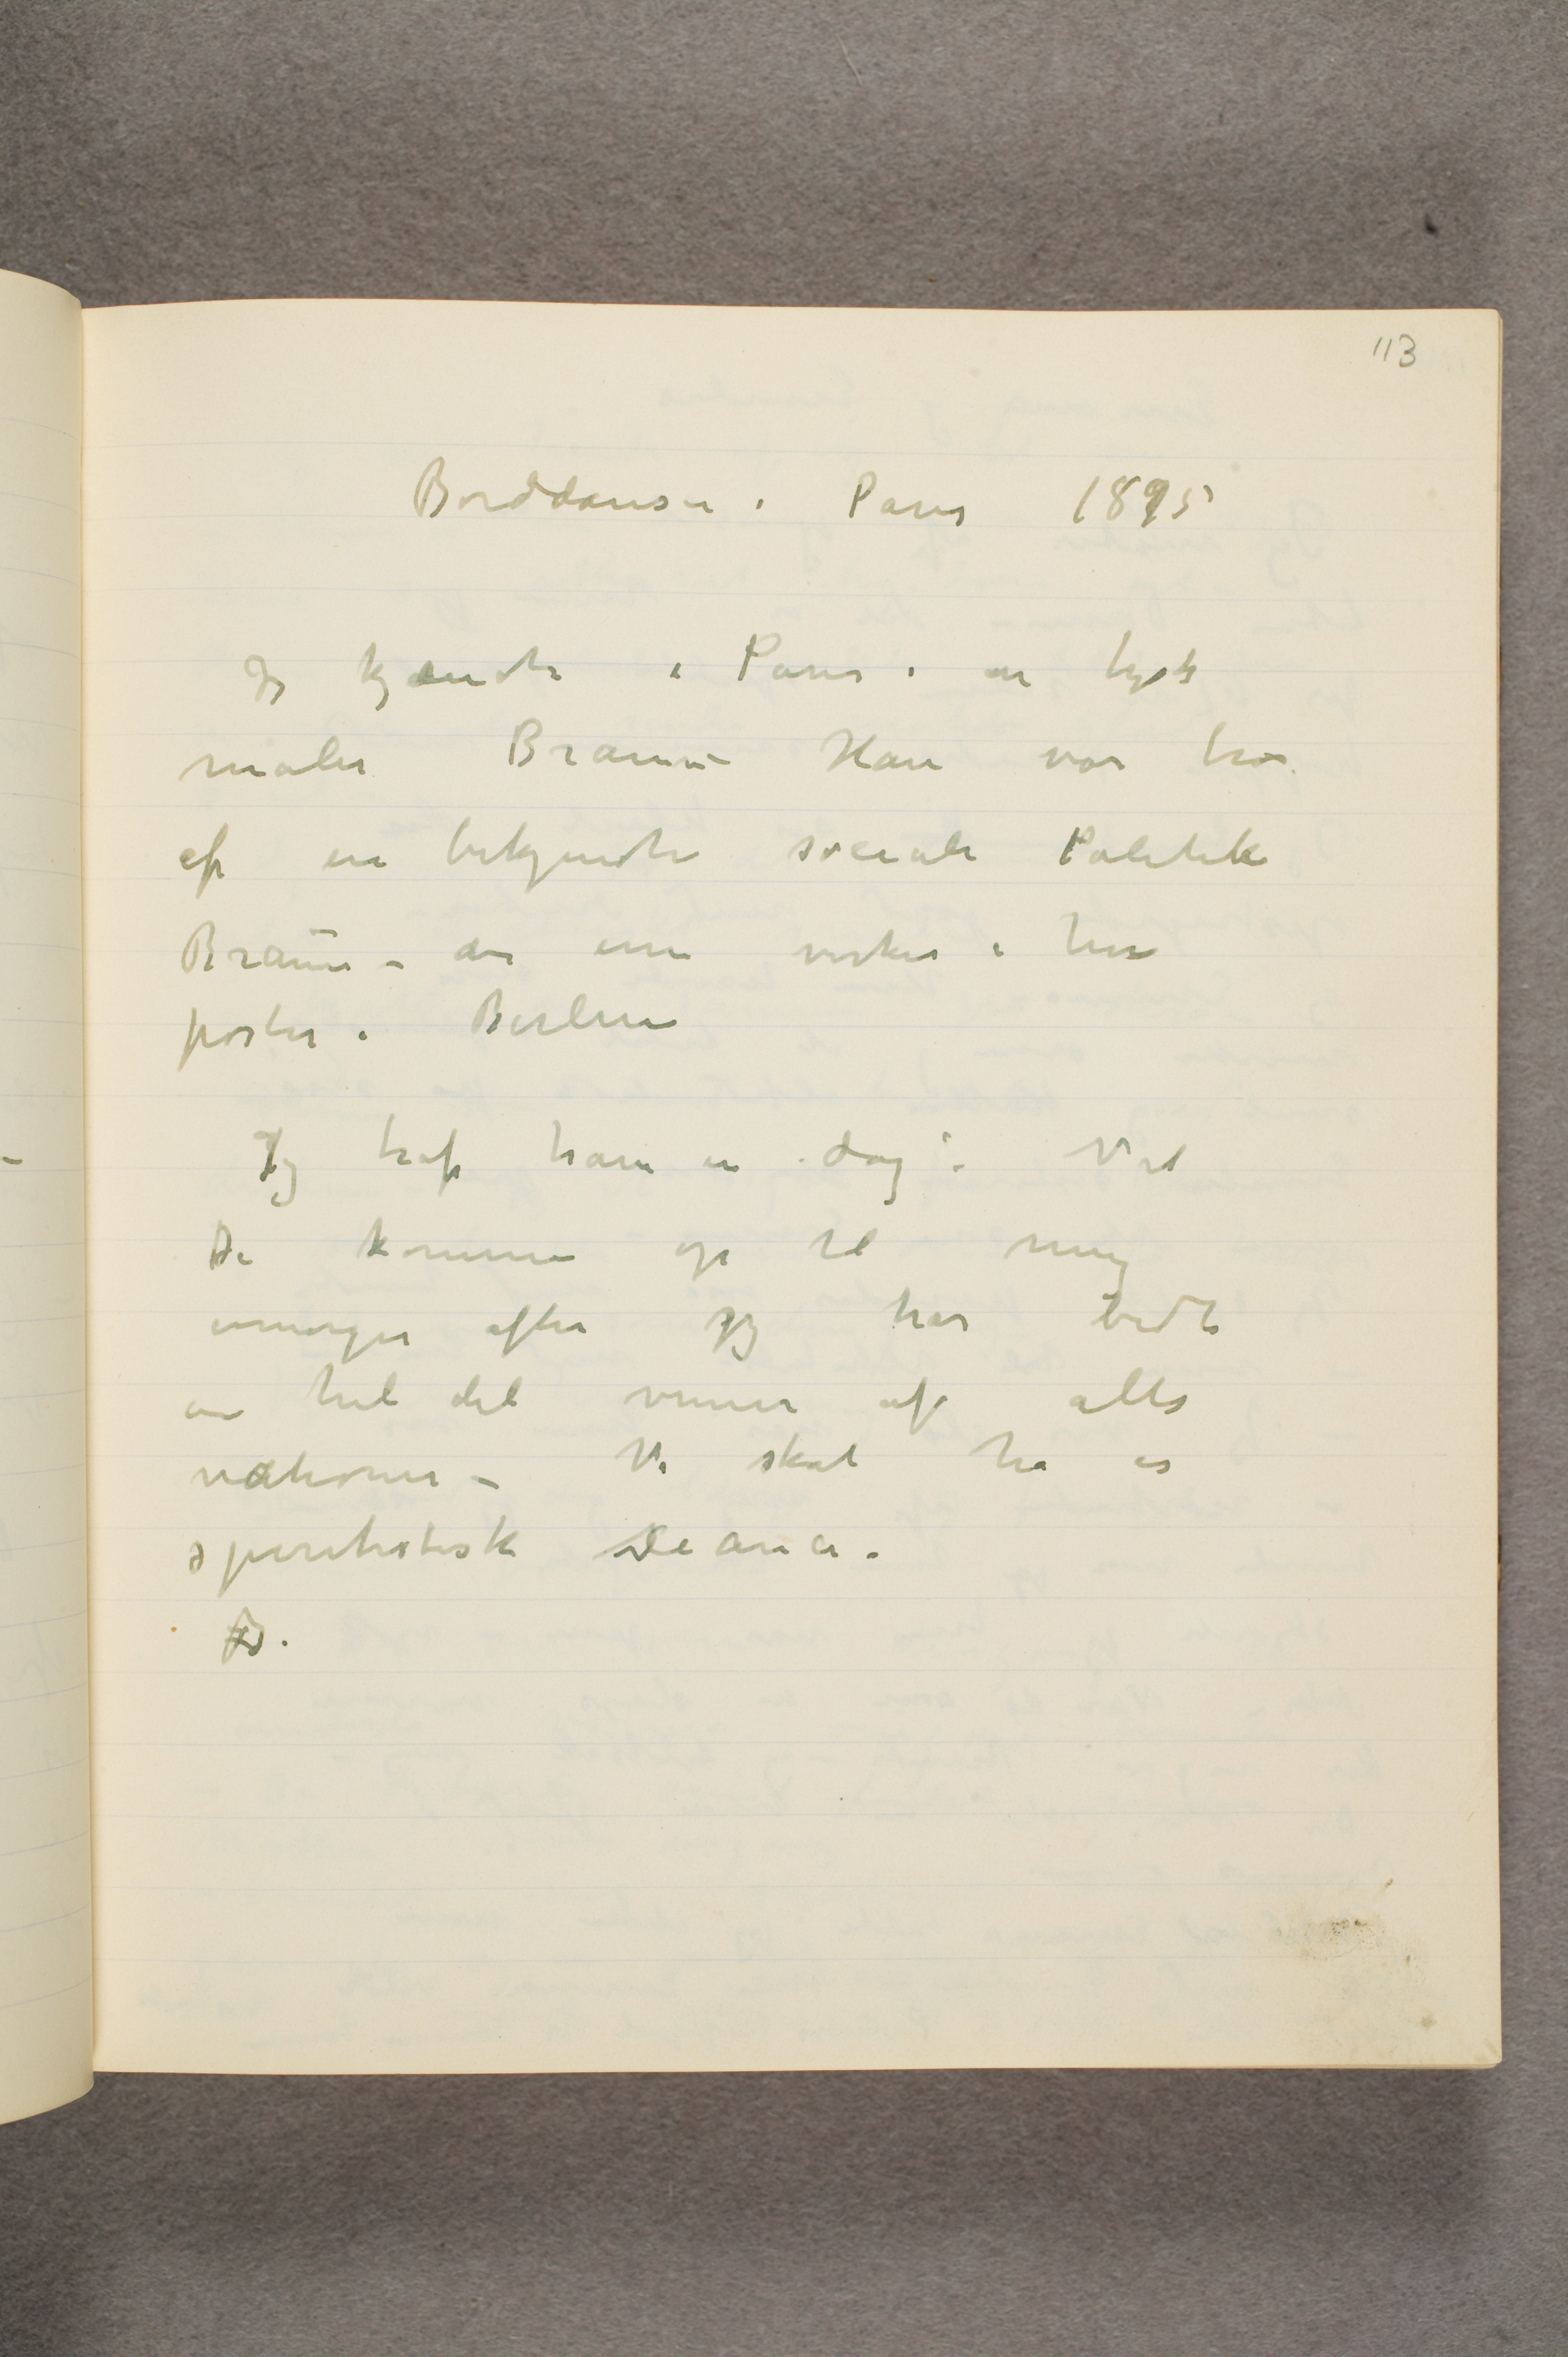 113
Borddansen i Paris 1895
Jeg kjendte i Paris i en tysk
maler Braun – Han var bror
af en bekjendte sociale Politike
Braun – der enn virker i høie
poster i Berlin
Jeg traf ham en dag: Vil
De komme op til mig
imorgen aften Jeg har bedt
en hel del venner af alle
nationer – Vi skal ha en
spiritistisk seance.